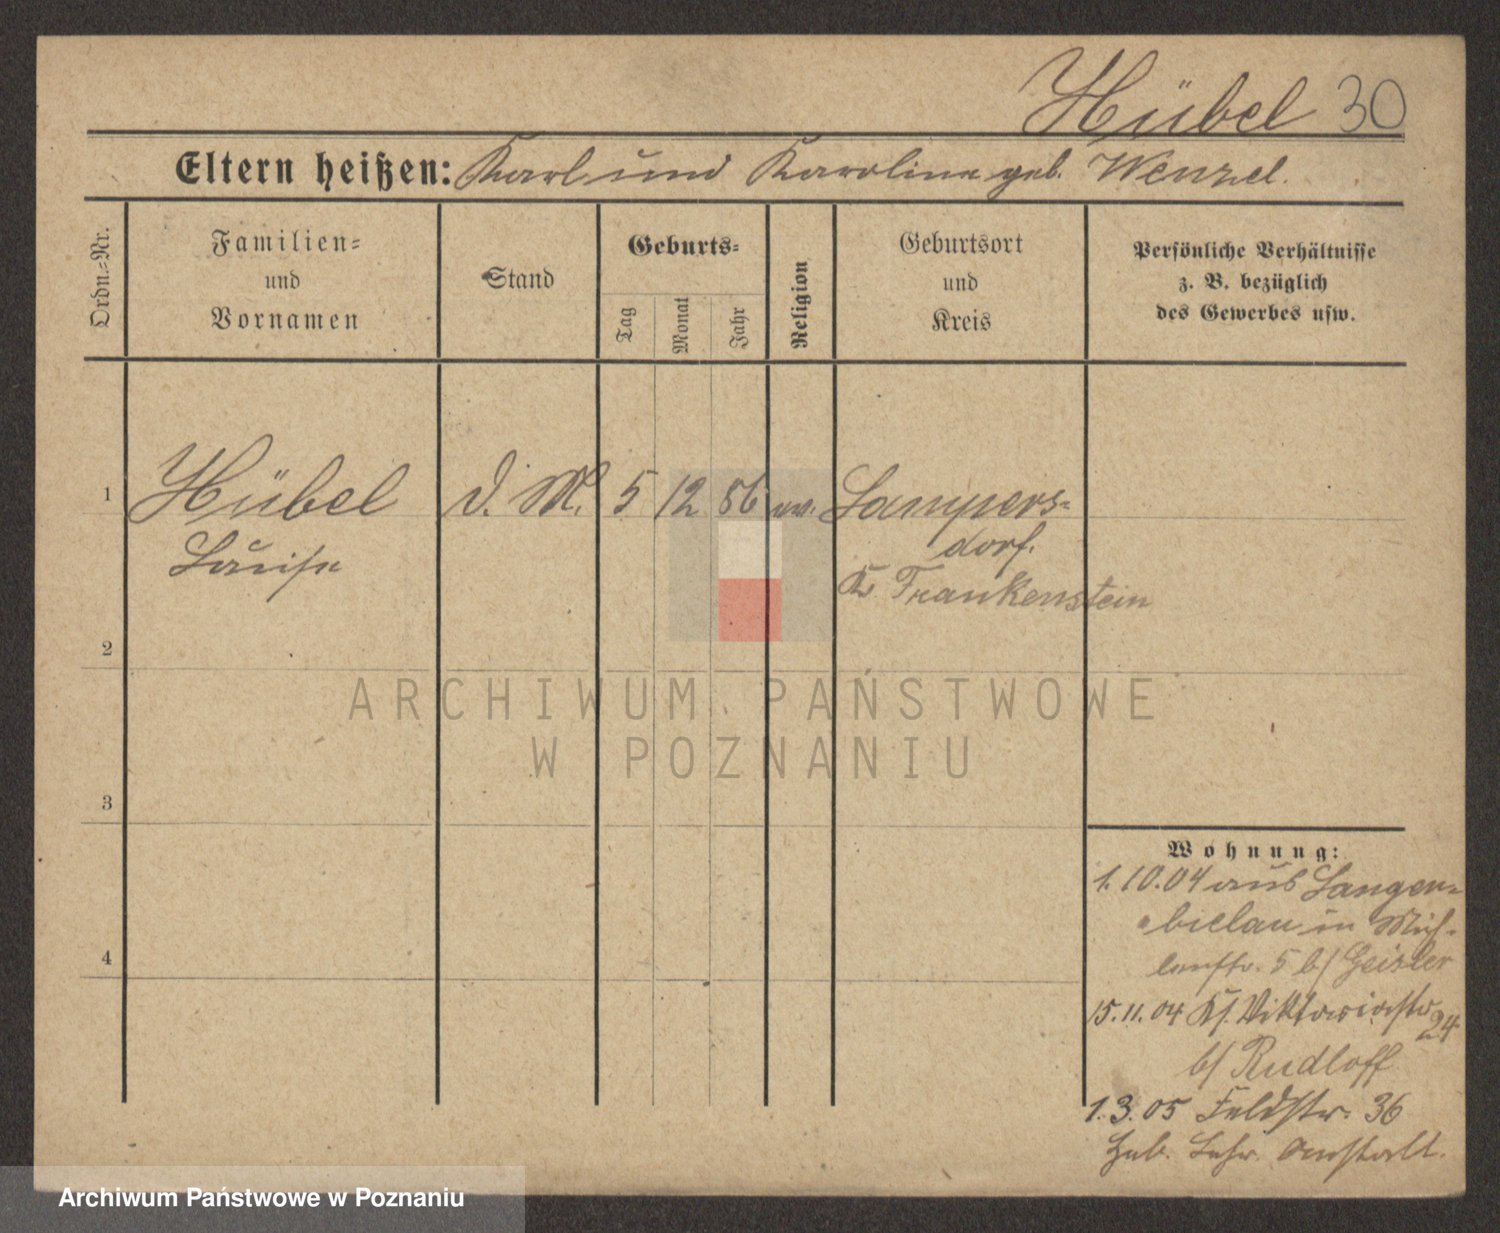 Hübel 30
Eltern heißen: Karl und Karoline geb. Wenzel.
Ordn.-Nr.
Familien-
und
Vornamen
Stand
Geburts-
Tag
Monat
Jahr
Religion
Geburtsort
und
Kreis
Persönliche Verhältnisse
z. B. bezüglich
des Gewerbes usw.
1 Hübel d. M. 5 12 86 ev. Lampers-
Luise dorf.
Kr. Frankenstein
2
3
4
ARCHIWUM PAŃSTWOWE
W POZNANIU
Wohnung:
1.10.04 aus Langen-
bielau in
5 b/ Geisler
15.11.04 Viktoriastr 24
b/ Rudloff
1.3.05 Feldstr. 36
Anstalt.
Archiwum Państwowe w Poznaniu